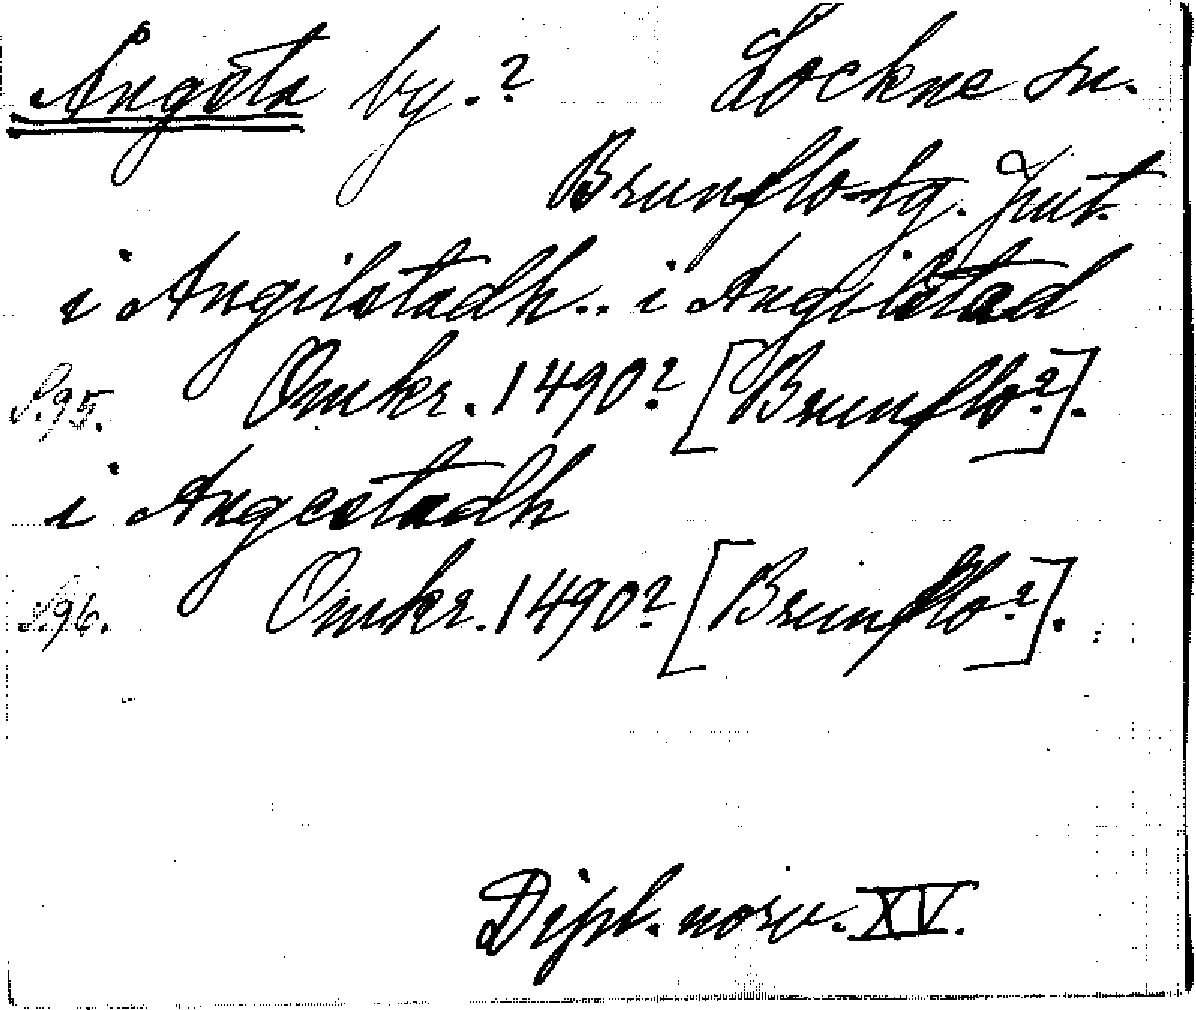 Ångsta by.? Lockne sn.
Brunflo tg. Jmt.
i Angilstadh.. i Angilstad
S.95. Omkr. 1490? [Brunflo?].
i Angestadh
S.96. Omkr. 1490? [Brunflo?].
Dipl. norv. XV.